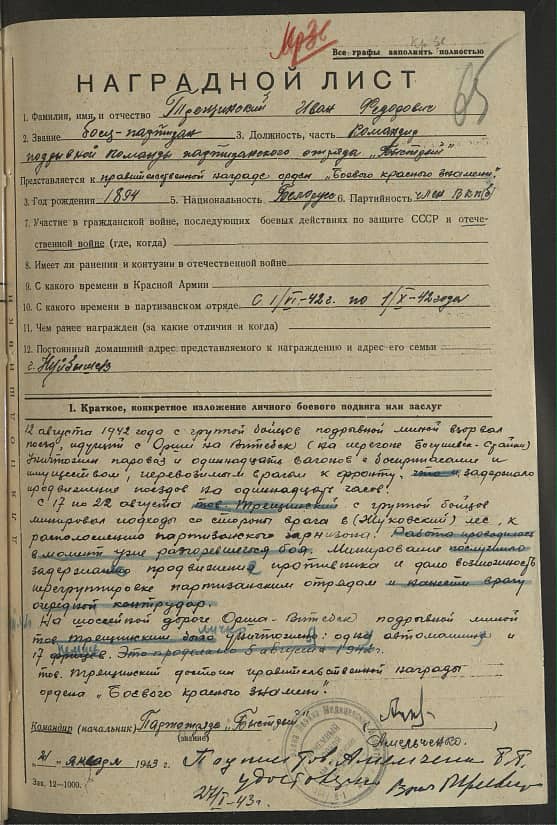 МрЗС
Все графы заполнять полностью
65
НАГРАДНОЙ ЛИСТ
1. Фамилия, имя и отчество Трещинский Иван Федорович
2. Звание боец-партизан 3. Должность, часть Командир
подрывной команды партизанского отряда "Быстрый"
Представляется к правительственной награде орден "Боевого красного знамени".
3. Год рождения 1894 5. Национальность Белорус 6. Партийность член ВКП(б)
7. Участие в гражданской войне, последующих боевых действиях по защите СССР и отече-
ственной войне (где, когда)
8. Имеет ли ранения и контузии в отечественной войне
9. С какого времени в Красной Армии
10. С какого времени в партизанском отряде С 1/VI-42г. по 1/X-42 года
11. Чем ранее награжден (за какие отличия и когда)
12. Постоянный домашний адрес представляемого к награждению и адрес его семьи
г. Куйбышев
для подшивки
1. Краткое, конкретное изложение личного боевого подвига или заслуг
12 августа 1942 года с группой бойцов подрывной миной взорвал
поезд, идущий с Орши на Витебск (на перегоне Богушевск-
Уничтожил паровоз и одиннадцать вагонов с боеприпасами и
имуществом, перевозимым врагом к фронту, что и задержало
продвижение поездов на одиннадцать часов.
С 17 по 22 августа тов. Трещинский с группой бойцов
минировал подходы со стороны врага в (Жуковский) лес, к
расположению партизанского гарнизона. Работа проводилась
в момент уже разгоревшегося боя. Минирование послужило
продвижения противника и дало возможность
перегруппировке партизанским отрядам и нанести врагу
очередной контрудар.
На шоссейной дороге Орша-Витебск подрывной миной
тов. Трещинским была уничтожена: одна автомашина и
17 фрицев. Это проделано 5 августа 1942г.
тов. Трещинский достоин правительственной награды
ордена "Боевого красного знамени".
Командир (начальник) Партотряда "Быстрый"
(звание)
Амельченко.
"21" января 1943 г.
Подпись тов. Амельченко
удостоверяю
27/I-43г.
Зак. 12-1000.